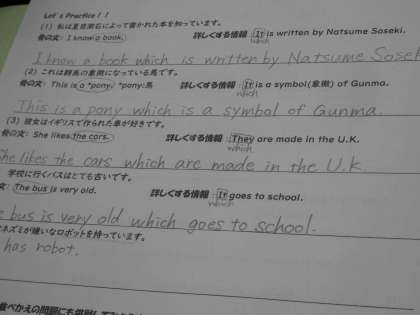 Let's Practice!!
(1) 私は夏目漱石によって書かれた本を知っています。
骨の文: I know a book. 詳しくする情報 : It is written by Natsume Soseki.
which
I know a book which is written by Natsume Sosek
(2) これは群馬の象徴になっている馬です。
骨の文: This is a *pony. *pony:馬 詳しくする情報 : It is a symbol(象徴) of Gunma.
which
This is a pony which is a symbol of Gunma.
(3) 彼女はイギリスで作られた車が好きです。
骨の文: She likes the cars. 詳しくする情報 : They are made in the U.K.
which
She likes the cars which are made in the U.K.
学校に行くバスはとても古いです。
文: The bus is very old. 詳しくする情報 : It goes to school.
which
e bus is very old which goes to school.
ネズミが嫌いなロボットを持っています。
has robot.